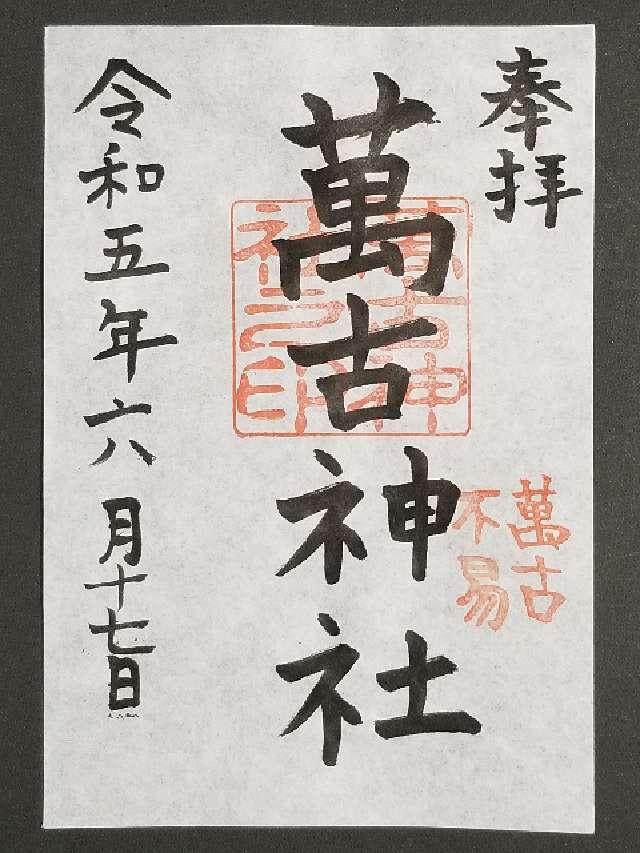 奉拝
萬古神社
萬古神社之印
萬古
不易
令和五年六月十七日